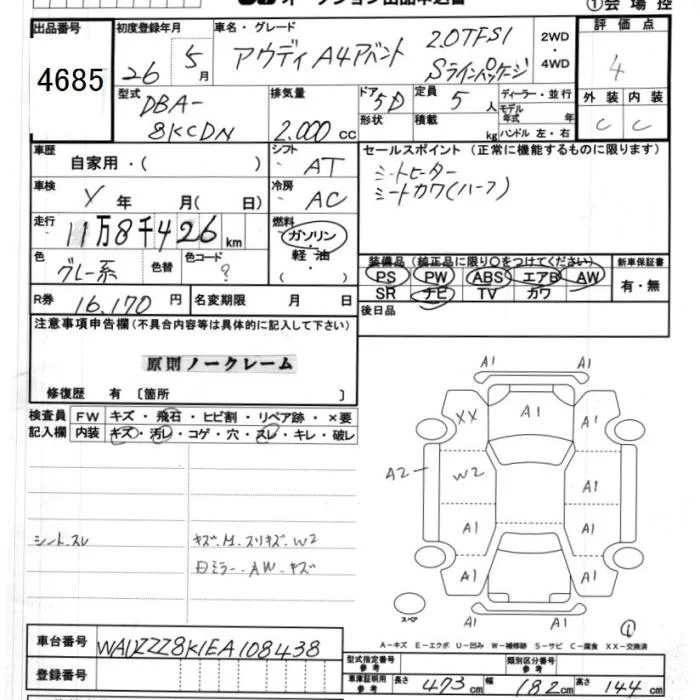 ①会場控
出品番号
4685
初度登録年月
26 5月
車名・グレード
アウディ A4アバント
2.0TFSI
Sラインパッケージ
2WD
・
4WD
評価点
4
外装 内装
C C
型式
DBA-
8KCDN
排気量
2.000 cc
ドア 5D
形状
定員 5 人
積載 kg
ディーラー・並行
モデル
年式 年
ハンドル 左・右
車歴
自家用・( )
シフト
AT
車検
Y 年 月( 日)
冷房
AC
走行
11万8千426km
燃料
ガソリン
・
軽油
( )
色
グレー系
色替
色コード
?
R券 16.170円
名変期限 月 日
セールスポイント (正常に機能するものに限ります)
シートヒーター
シートカワ(ハーフ)
装備品 (純正品に限り○をつけてください)
PS PW ABS エアB AW
SR ナビ TV カワ
新車保証書
有・無
後日品
注意事項申告欄(不具合内容等は具体的に記入して下さい)
原則ノークレーム
修復歴 有〔箇所 〕
検査員
記入欄
FW キズ・飛石・ヒビ割・リペア跡・×要
内装 キズ・汚レ・コゲ・穴・スレ・キレ・破レ
シート.スレ
キズ.M.スリキズ.W2
日ミラー.AW.キズ
A1 A1
XX A1 A1
A2 W2 A1
A1 A1
A1 A1 A1
A1 A1
スペア
①
A-キズ E-エクボ U-凹み W-補修跡 S-サビ C-腐食 XX-交換済
車台番号
WAUZZZ8K1EA108438
登録番号
型式指定番号
参考
類別区分番号
参考
車庫証明用
参考
長さ 473cm 幅 182cm 高さ 144cm